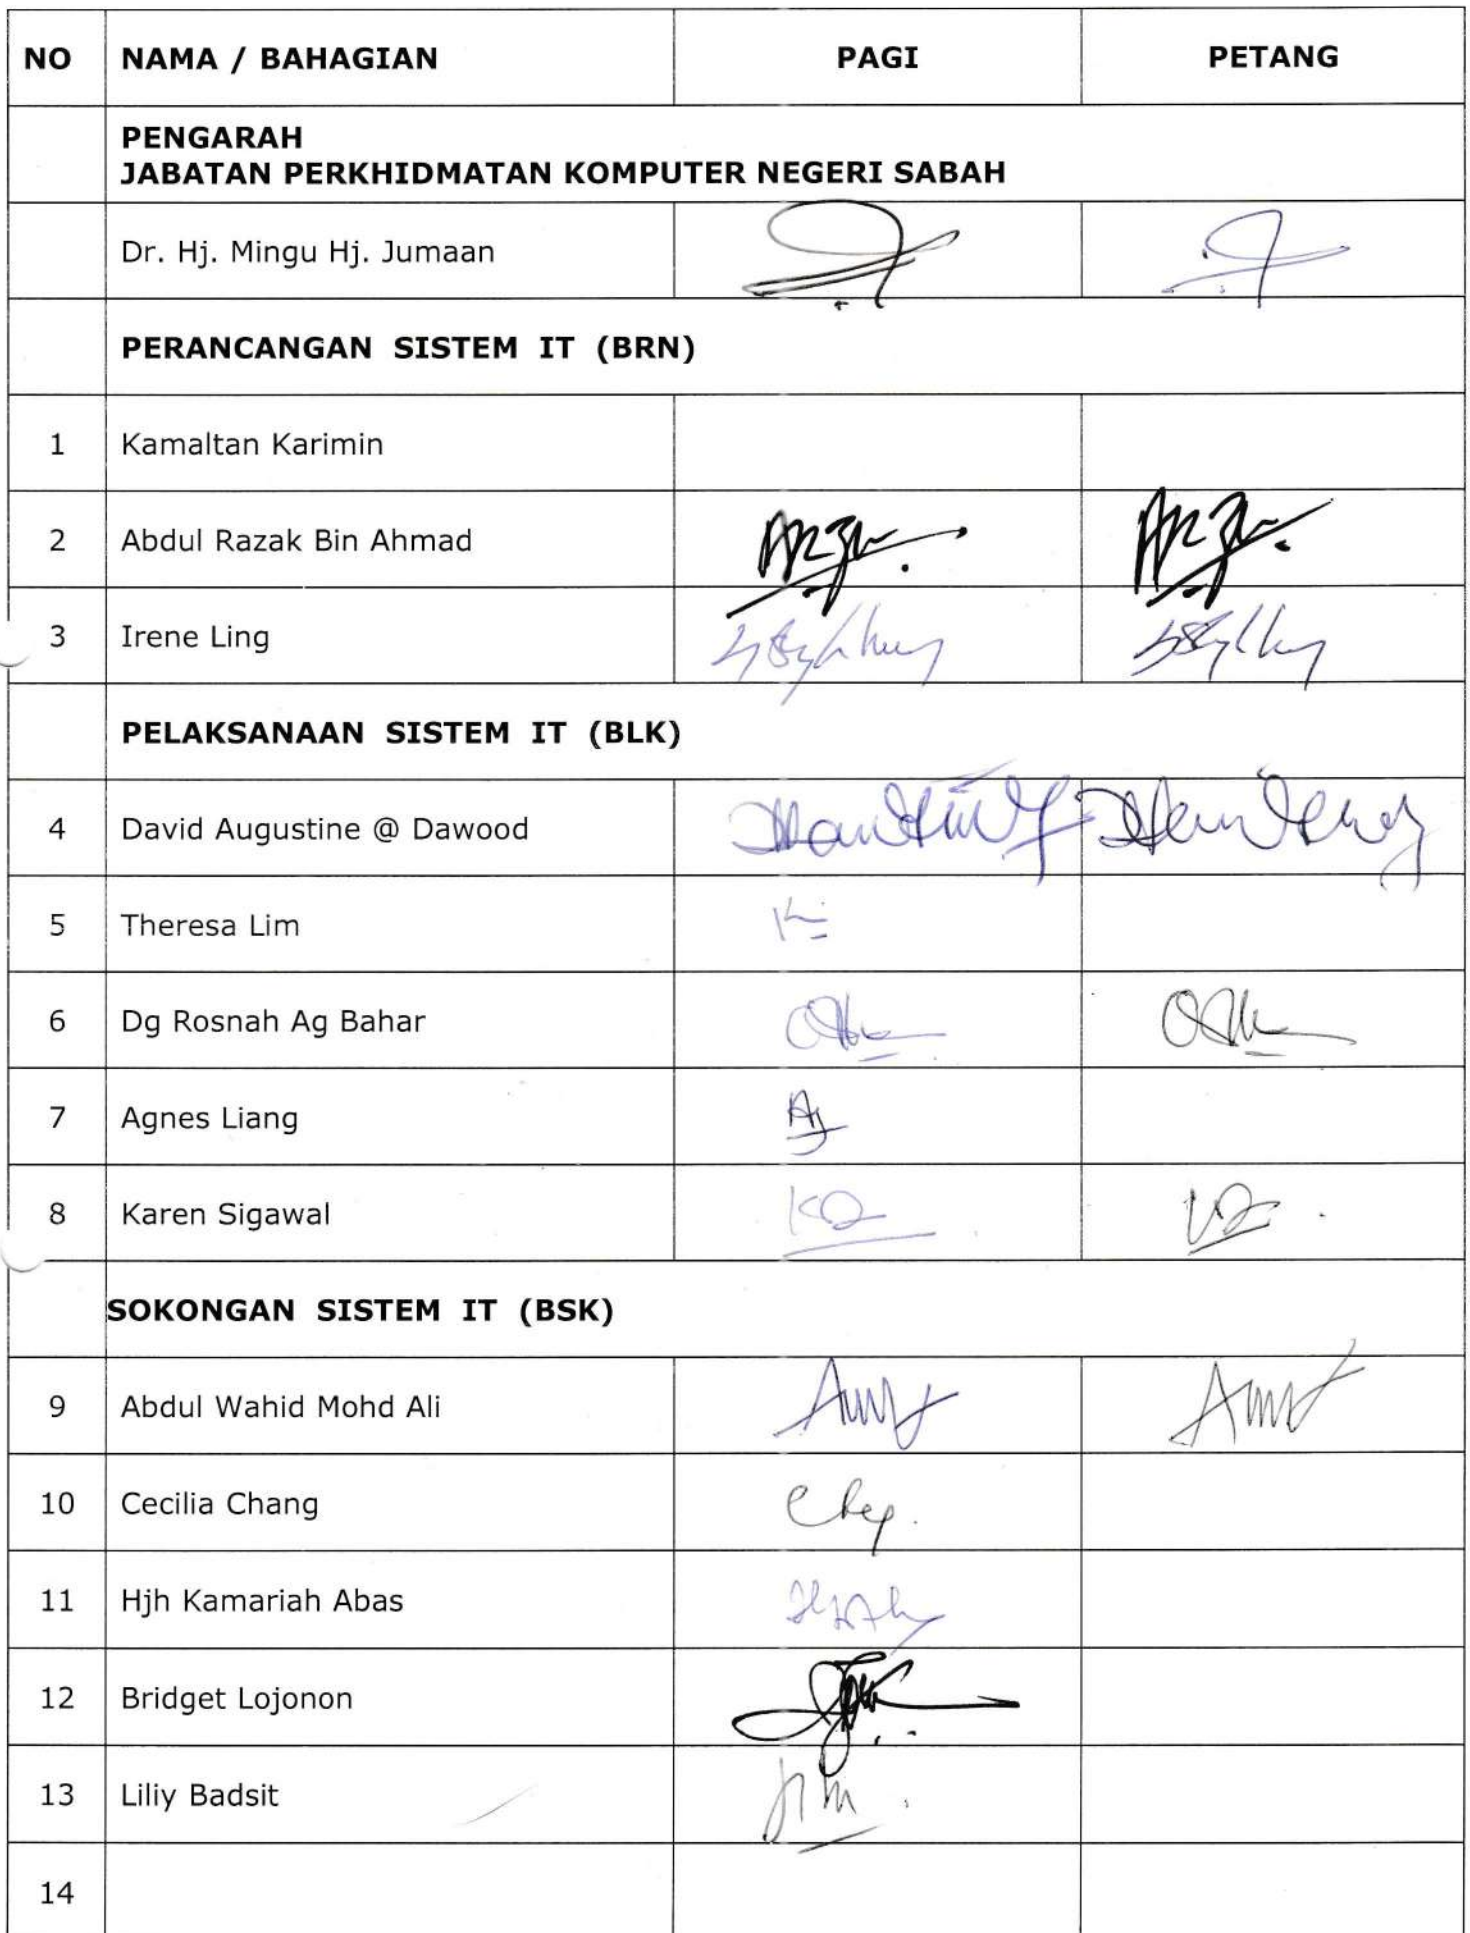 NO NAMA / BAHAGIAN PAGI PETANG
PENGARAH
JABATAN PERKHIDMATAN KOMPUTER NEGERI SABAH
Dr. Hj. Mingu Hj. Jumaan
PERANCANGAN SISTEM IT (BRN)
1 Kamaltan Karimin
2 Abdul Razak Bin Ahmad
3 Irene Ling
PELAKSANAAN SISTEM IT (BLK)
4 David Augustine @ Dawood
5 Theresa Lim
6 Dg Rosnah Ag Bahar
7 Agnes Liang
8 Karen Sigawal
SOKONGAN SISTEM IT (BSK)
9 Abdul Wahid Mohd Ali
10 Cecilia Chang
11 Hjh Kamariah Abas
12 Bridget Lojonon
13 Liliy Badsit
14